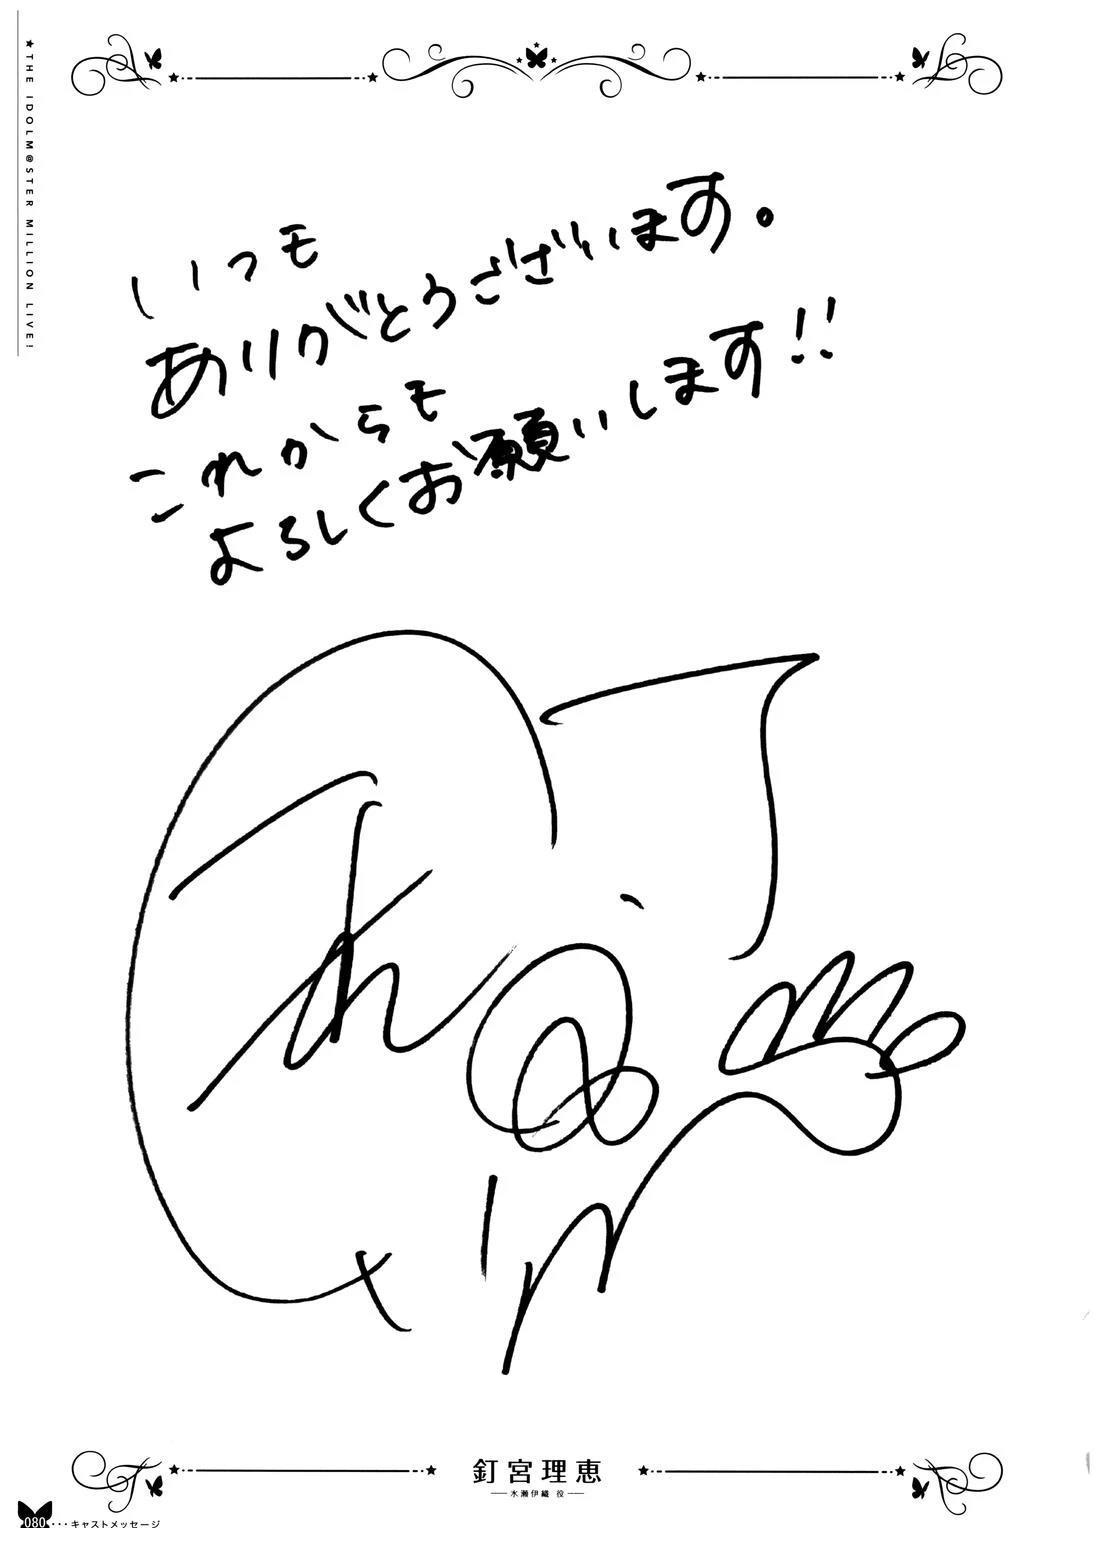 ★THE IDOLM@STER MILLION LIVE!
いつも
ありがとうございます。
これからも
よろしくお願いします!!
釘宮理恵
水瀬伊織 役
080・・・キャストメッセージ